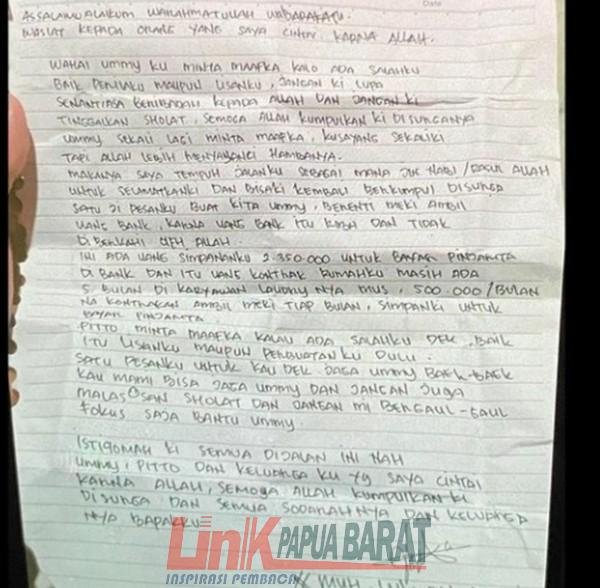 Date
ASSALAMUALAIKUM WARAHMATULLAH WABARAKATU.
WASIAT KEPADA ORANG YANG SAYA CINTAI KARNA ALLAH.
WAHAI UMMY KU MINTA MAAFKA KALO ADA SALAHKU
BAIK PERILAKU MAUPUN LISANKU, JANGAN KI LUPA
SENANTIASA BERIBADAH KEPADA ALLAH DAN JANGAN KI
TINGGALKAN SHOLAT, SEMOGA ALLAH KUMPULKAN KI DISURGANYA
UMMY SEKALI LAGI MINTA MAAFKA, KUSAYANG SEKALIKI
TAPI ALLAH LEBIH MENYAYANGI HAMBANYA.
MAKANYA SAYA TEMPUH JALANKU SEBAGAI MANA NABI / RASUL ALLAH
UNTUK SELAMATKANKI DAN BISAKI KEMBALI BERKUMPUL DISURGA
SATU JI PESANKU BUAT KITA UMMY, BERENTI MEKI AMBIL
UANG BANK, KARNA UANG BANK ITU DAN TIDAK
DIBERKAHI OLEH ALLAH.
INI ADA UANG SIMPANANKU 2.350.000 UNTUK BAYAR PINJAMTA
DI BANK DAN ITU UANG KONTRAK RUMAHKU MASIH ADA
5 BULAN DI KARYAWAN LAUNDRY NYA MUS, 500.000/BULAN
NA KONTRAKAN AMBIL MEKI TIAP BULAN, SIMPANKI UNTUK
BAYAR PINJAMTA
PITTO MINTA MAAFKA KALAU ADA SALAHKU DEK, BAIK
ITU LISANKU MAUPUN PERBUATAN KU DULU.
SATU PESANKU UNTUK KAU DEK JAGA UMMY BAEK-BAEK
KAU MAMI BISA JAGA UMMY DAN JANGAN JUGA
MALAS OSAN SHOLAT DAN JANGAN MI BERGAUL-GAUL
FOKUS SAJA BANTU UMMY.
ISTIQOMAH KI SEMUA DIJALAN INI NAH
UMMY, PITTO DAN KELUARGA KU YG SAYA CINTAI
KARNA ALLAH, SEMOGA ALLAH KUMPULKAN KI
DISURGA DAN SEMUA SODARAHNYA DAN KELUARGA
NYA BAPAKKU
LinK PAPUA BARAT
INSPIRASI PEMBACA
MUH